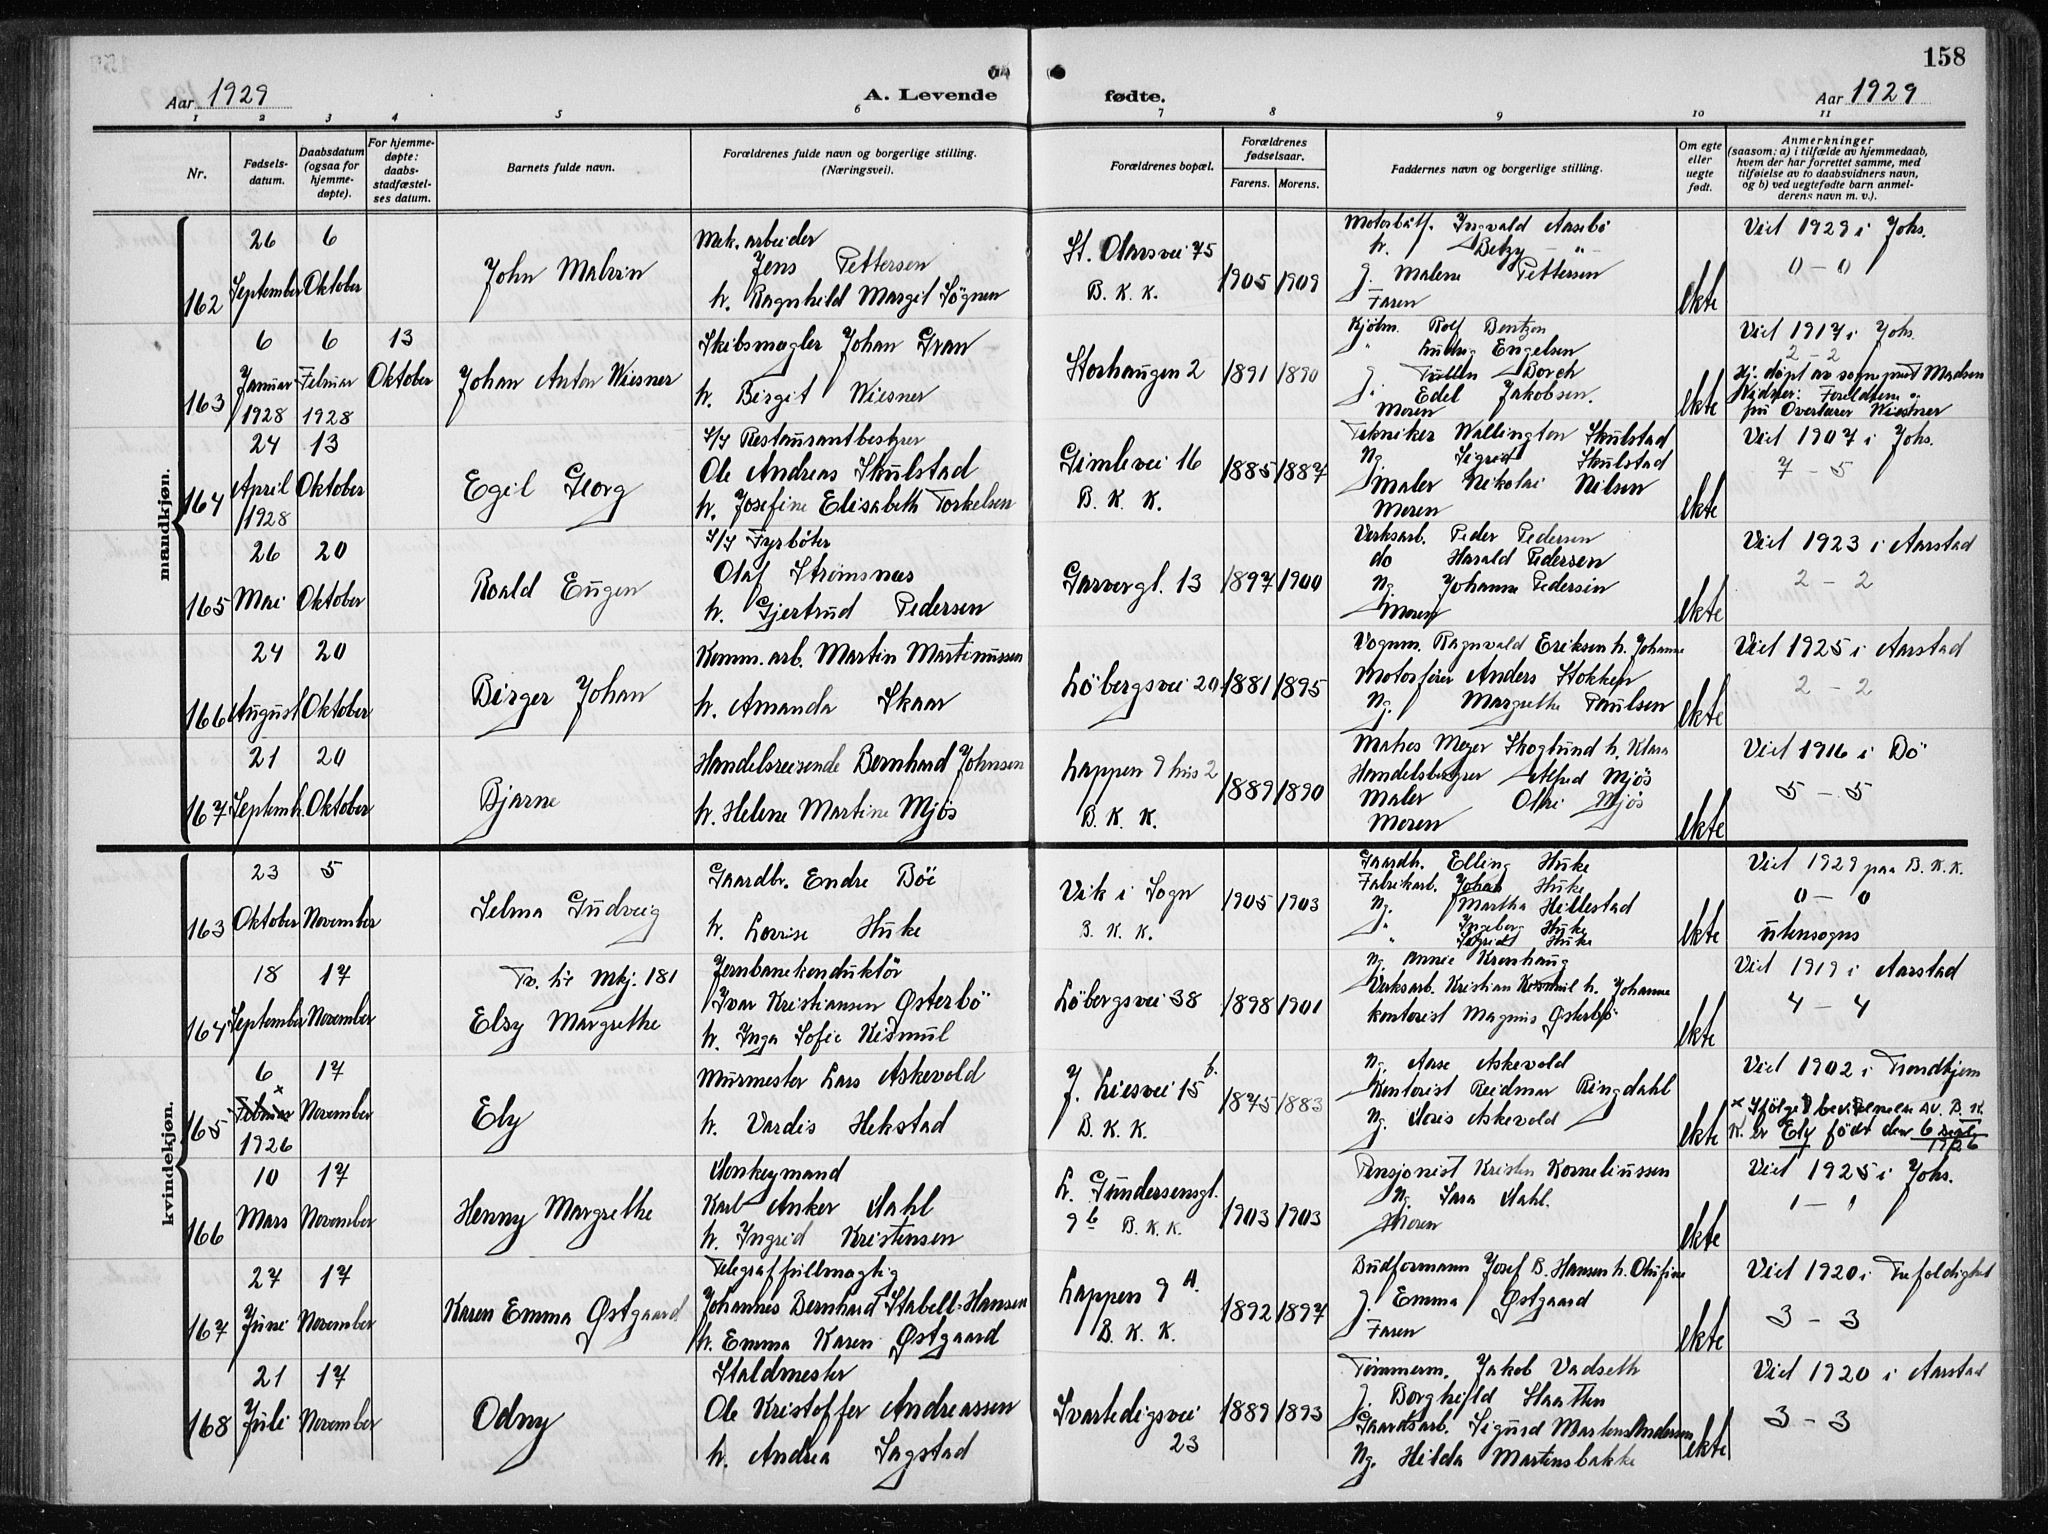 158
Aar 1929
A. Levende fødte.
Aar 1929
1 2 3 4 5 6 7 8 9 10 11
Nr.
Fødsels-
datum.
Daabsdatum
(ogsaa for
hjemme-
døpte).
For hjemme-
døpte:
daabs-
stadfæstel-
ses datum.
Barnets fulde navn.
Forældrenes fulde navn og borgerlige stilling.
(Næringsvei).
Forældrenes bopæl.
Forældrenes
fødselsaar.
Farens. Morens.
Faddernes navn og borgerlige stilling.
Om egte
eller
uegte
født.
Anmerkninger
(saasom: a) i tilfælde av hjemmedaab,
hvem der har forrettet samme, med
tilføielse av to daabsvidners navn,
og b) ved uegtefødte barn anmel-
derens navn m. v.).
mandkjøn.
162
26
September
6
Oktober
John Malvin
Mek. arbeider
Jens Pettersen
h. Ragnhild Margit Søgnen
St. Olavsvei 75
B. K. K.
1905 1909
Motorbåtf. Ingvald Aasebö
h. Betzy - " -
J. Malene Pettersen
Faren
ekte
Viet 1929 i Johs.
0 - 0
163
6
Januar
1928
6
Februar
1928
13
Oktober
Johan Anton Wiesner
Skibsmægler Johan Gran
h. Birgit Wiesner
Storhaugen 2
1891 1890
Kjøbm. Rolf Bentzon
" Ludvig Engelsen
J. Tullen Borch
J. Edel Jakobsen.
Moren
ekte
Viet 1917 i Johs.
2 - 2
Hj. døpt av sogneprest Madsen
Vidner: Foreldrene
Overlærer Wiesner
164
24
April
1928
13
Oktober
Egil Georg
S/S Restaurantbestyrer
Ole Andreas Skulstad
h. Josefine Elisabeth Torkelsen
Gimlevei 16
B. K. K.
1885 1887
Tekniker Wallington Skulstad
Ng. Sigrid Skulstad
Maler Nikolai Nilsen
Moren
ekte
Viet 1907 i Johs.
7 - 5
165
26
Mai
20
Oktober
Roald Eugen
S/S Fyrböter
Olaf Strømsnæs
h. Gjertrud Pedersen
Garvergt. 13
1897 1900
Verksarb. Peder Pedersen
do Harald Pedersen
Ng. Johanne Pedersen
Moren
ekte
Viet 1923 i Aarstad
2 - 2
166
24
August
20
Oktober
Birger Johan
Komm. arb. Martin Martinussen
h. Amanda Skaar
Löbergsvei 20
1881 1895
Vognm. Ragnvald Eriksen h. Johanne
Motorfører Anders Stokken
Ng. Margrethe Paulsen
ekte
Viet 1925 i Aarstad
2 - 2
167
21
Septemb.
20
Oktober
Bjarne
Handelsreisende Bernhard Johnsen
h. Helene Martine Mjös
Lappen 9 hus 2
B. K. K.
1889 1890
Matros Meyer Skoglund h. Klara
Handelsbestyrer Alfred Mjös
Maler Mjös
Moren
ekte
Viet 1916 i Bö
5 - 5
kvindekjøn.
163
23
Oktober
5
November
Selma Gudveig
Gaardbr. Endre Böe
h. Lovise Huke
Vik i Sogn
B. K. K.
1905 1903
Gaardb. Elling Huke
Fabrikarb. Johan Huke
Ng. Martha Hellestad
" Ingeborg Huke
" Sigrid Huke
ekte
Viet 1929 paa B. K. K.
0 - 0
utensogns
164
18
September
17
November
Tv. til Mkj. 181
Elsy Margrethe
Jernbanekonduktör
Ivar Kristiansen Østerbö
h. Inga Sofie Kismul
Löbergsvei 38
1898 1901
Ng. Annie Kronhaug
Verksarb. Kristian Kismul h. Johanne
kontorist Magnus Østerbö
ekte
Viet 1919 i Aarstad
4 - 4
165
6 x
Februar
1926
17
November
Ely
Murmester Lars Askevold
h. Vardis Hekstad
J. Liesvei 15 b.
B. K. K.
1875 1883
Ng. Aase Askevold
Kontorist Reidmar Ringdahl
Ng. Doris Askevold
ekte
Viet 1902 i Trondhjem
x Ifølge bevidnelse av B. K.
K. er Ely født den 6 sept.
1926
166
10
Mars
17
November
Henny Margrethe
Donkeymand
Karl Anker Dahl
h. Ingrid Kristensen
L. Gundersensgt.
9 b B. K. K.
1903 1903
Pensjonist Kristen Korneliussen
Ng. Sara Dahl.
Moren
ekte
Viet 1925 i Johs.
1 - 1
167
27
Juni
17
November
Karen Emma Østgaard
Telegraffullmægtig
Johannes Bernhard Stabell-Hansen
h. Emma Karen Østgaard
Lappen 9 A.
B. K. K.
1892 1897
Budformann Josef B. Hansen h. Olufine
J. Emma Østgaard
Faren
ekte
Viet 1920 i Trefoldighet
3 - 3
168
21
Juli
17
November
Odny
Staldmester
Ole Kristoffer Andreassen
h. Andrea Sagstad
Svartedigsvei
23
1889 1893
Tömmerm. Jakob Vadseth
J. Borghild Slaatten
Gaardsarb. Sigurd Martens Andersen
Ng. Hilda Martensbakke
ekte
Viet 1920 i Aarstad
3 - 3